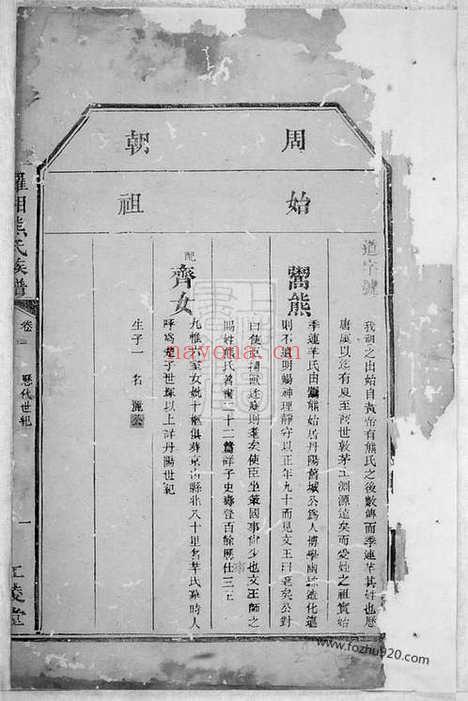 周朝
始祖
道字號
我胡之出始自黃帝有熊氏之後數傳而季連芈其姓也歷
唐虞以迄有夏至商世敦茅土淵源遠矣而受姓之祖實始
鬻熊
季連芈氏由鬻熊始居丹陽舊城公為人博學幽綜造化邁
則不遺明暢神理靜守以正年九十而見文王曰耄矣公對
曰使臣捕獸逐麋則耄矣使臣坐策國事尚少也文王師之
賜姓熊氏著書二十二篇詳子史壽登百餘歷仕三王
配
齊女
九惟不至女姚十軀俱葬京 縣北八十里名芈氏 時人
呼為楚子世琛以上詳丹陽世紀
生子一 名麗公
羅湘熊氏族譜
卷一
歷代世紀
一
江陵堂
nayona.cn
www.fozhu920.com